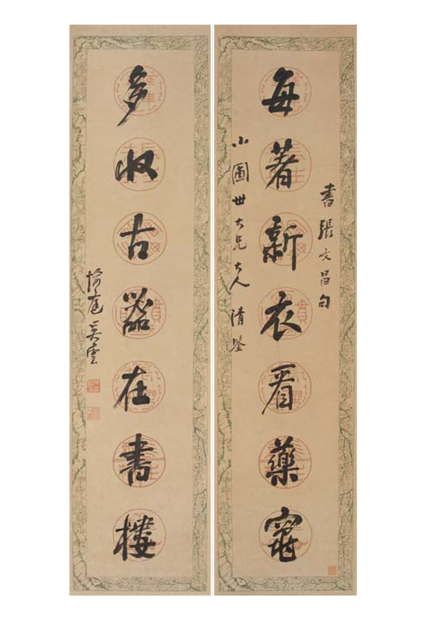 書張文昌句
每著新衣看藥竈
小圃世大兄大人清鑒
多收古器在書樓
吳雲